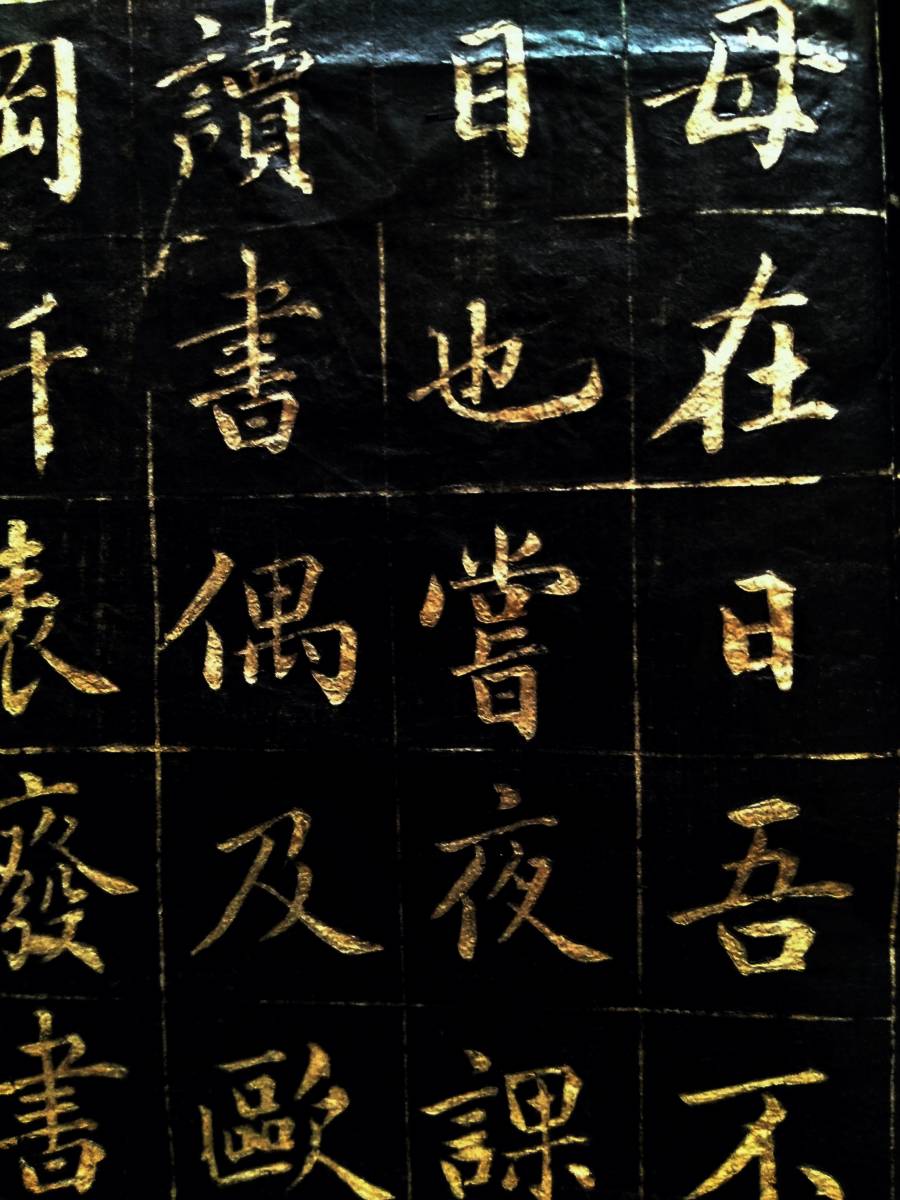 母在日吾不
目也嘗夜課
讀書偶及歐
岡阡表發書